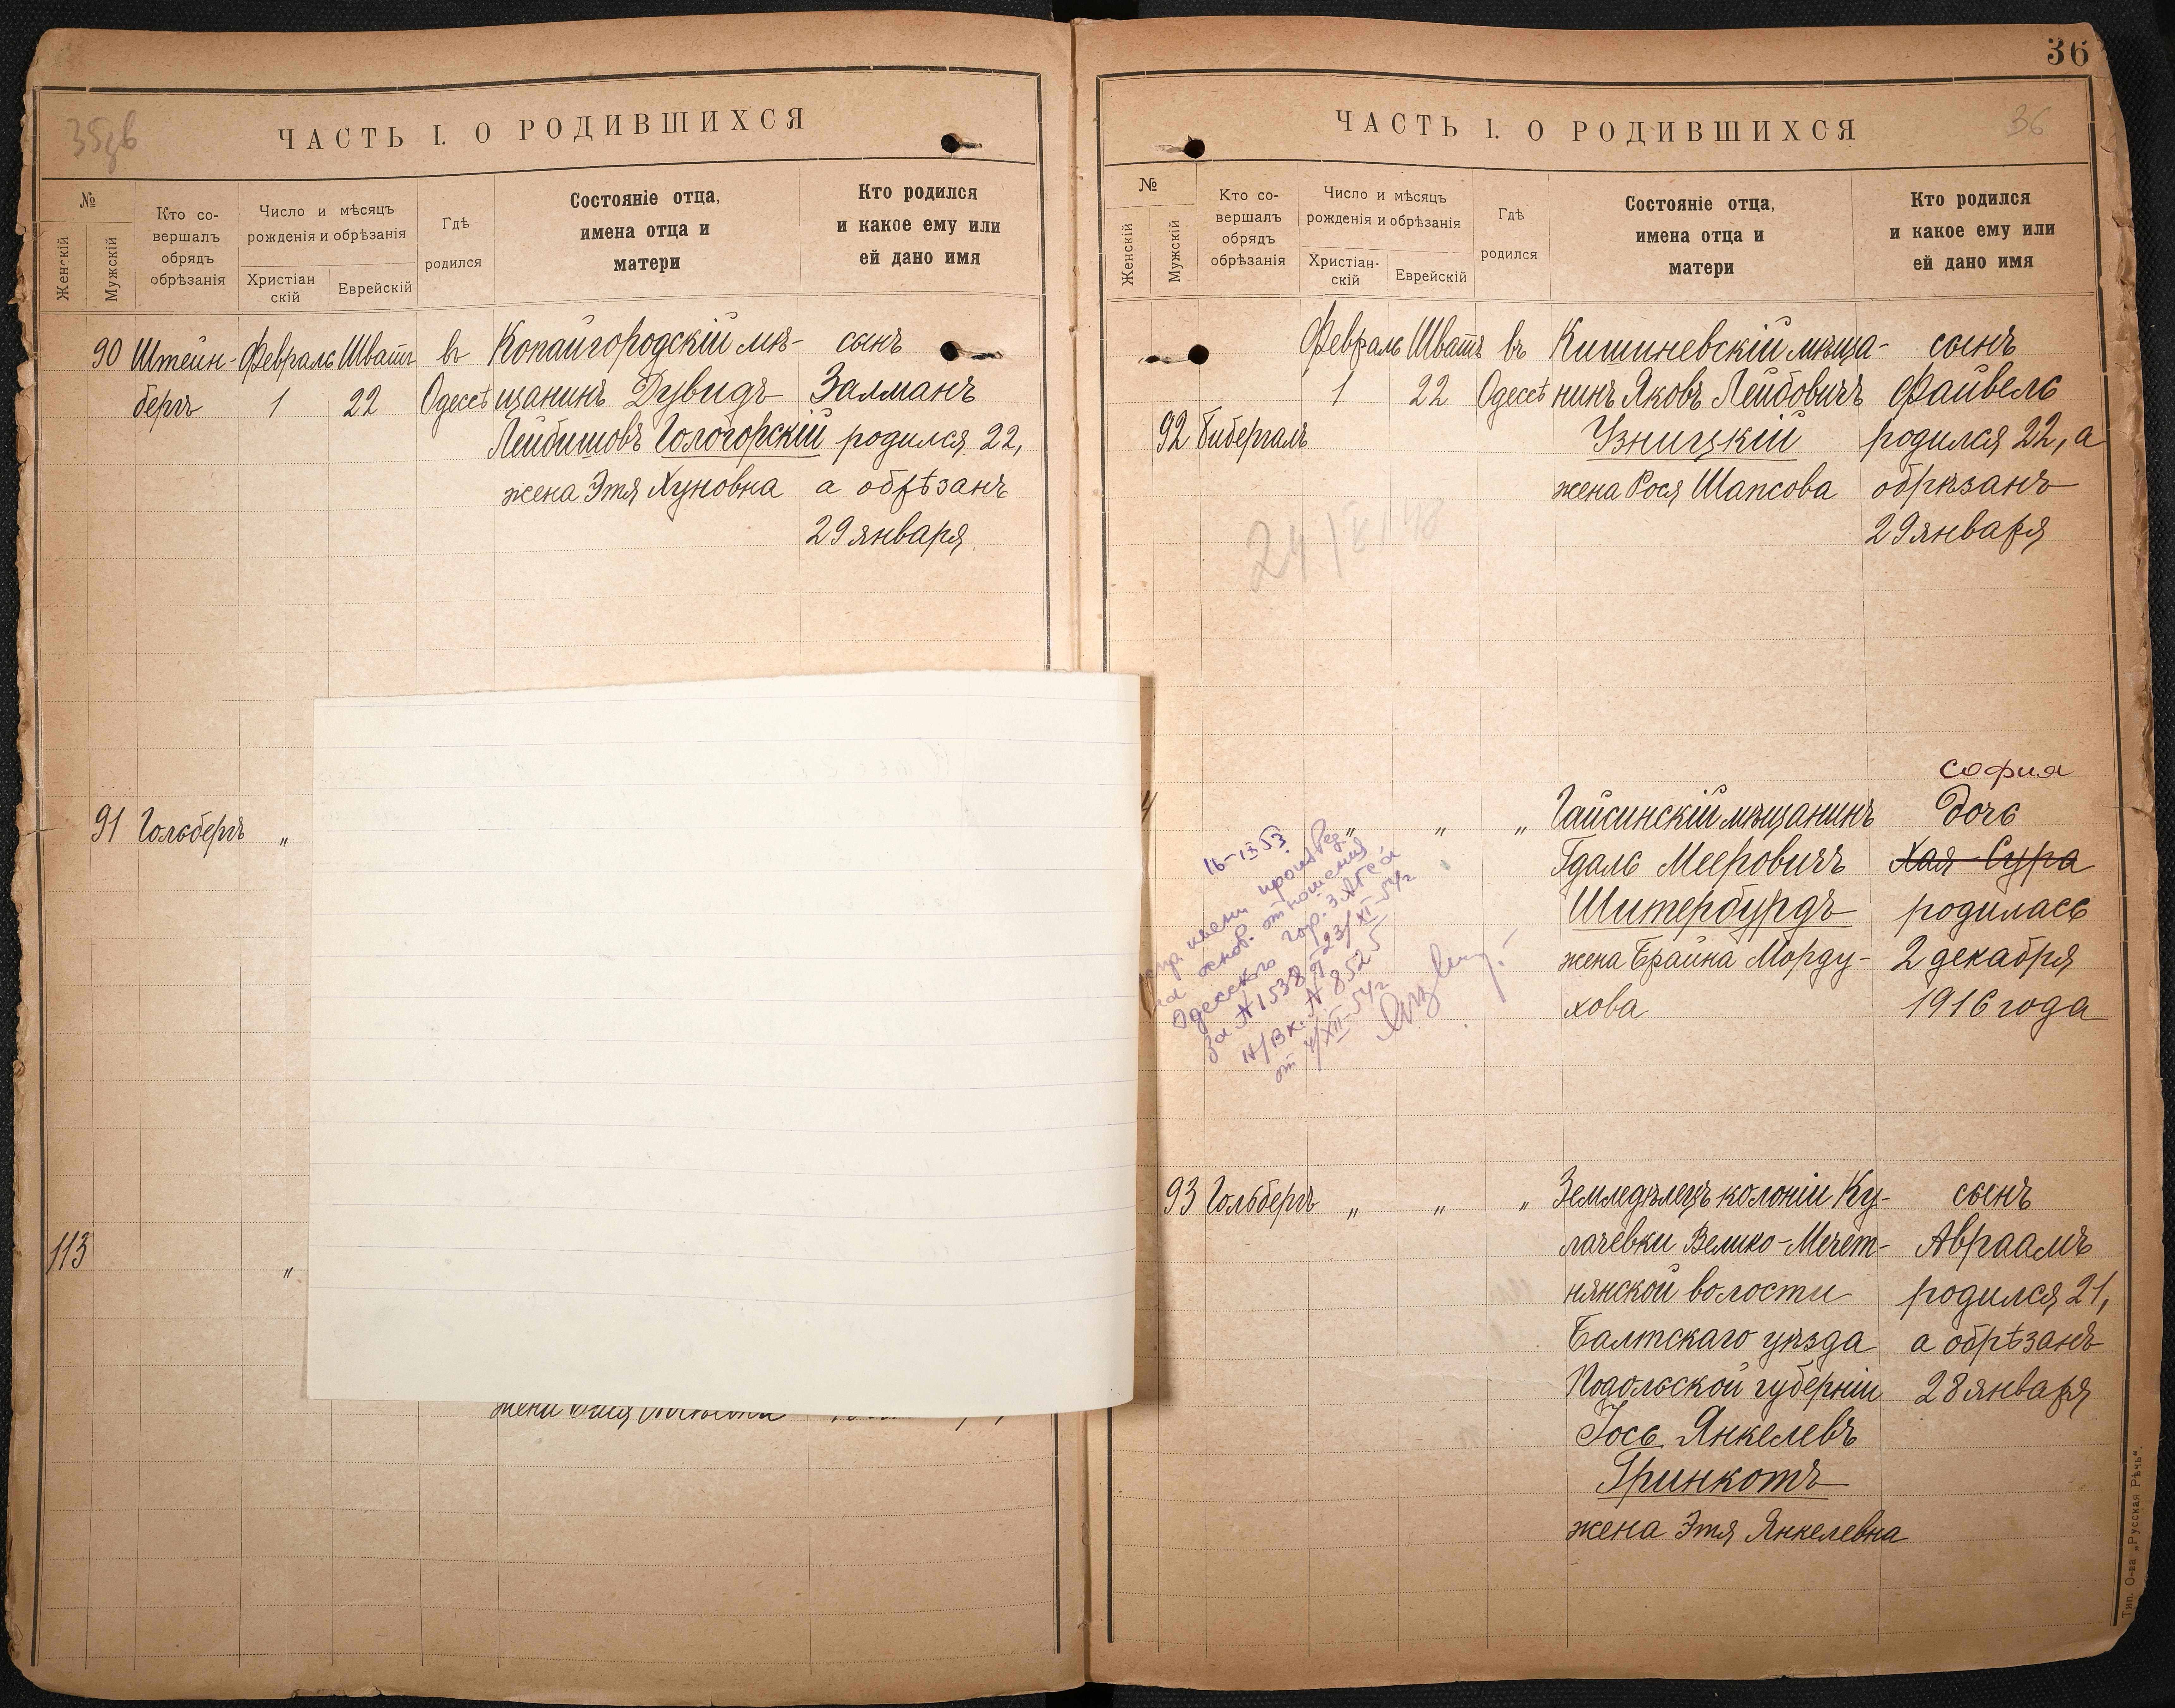 35 об
ЧАСТЬ I. О РОДИВШИХСЯ
№
Женскій
Мужскій
Кто со-
вершалъ
обрядъ
обрѣзанія
Число и мѣсяцъ
рожденія и обрѣзанія
Христіан
скій
Еврейскій
Гдѣ
родился
Состояніе отца,
имена отца и
матери
Кто родился
и какое ему или
ей дано имя
90 Штейн- Февраль Шватъ въ Копайгородскій мѣ- сынъ
бергъ 1 22 Одессѣ щанинъ Дувидъ Залманъ
Лейбишовъ Гологорскій родился 22,
жена Этя Хуновна а обрѣзанъ
29 января
91 Гольбергъ „
113 „
жена
36
ЧАСТЬ I. О РОДИВШИХСЯ
36
№
Женскій
Мужскій
Кто со-
вершалъ
обрядъ
обрѣзанія
Число и мѣсяцъ
рожденія и обрѣзанія
Христіан-
скій
Еврейскій
Гдѣ
родился
Состояніе отца,
имена отца и
матери
Кто родился
и какое ему или
ей дано имя
Февраль Шватъ въ Кишиневскій мѣща- сынъ
1 22 Одессѣ нинъ Яковъ Лейбовичъ Файвель
92 Бибергалъ Узницкій родился 22, а
жена Рося Шапсова обрѣзанъ
29 января
София
„ „ „ Гайсинскій мѣщанинъ дочь
Гдаль Мееровичъ Хая-Сура
Шитербургъ родилась
жена Брайна Морду- 2 декабря
хова 1916 года
16-IX 53
имени произвед
на основ. отношения
Одесского гор. ЗАГСа
за № 1538 от 23/XI-54г
Н/Вх. № 8525
от 4/XII-54г
93 Гольбергъ „ „ „ Земледѣлецъ колоніи Ку- сынъ
лачевки Велико-Мечет- Авраамъ
нянской волости родился 21,
Балтскаго уѣзда а обрѣзанъ
Подольской губерніи 28 января
Іось Янкелевъ
Гринкотъ
жена Этя Янкелевна
Тип. О-ва „Русская Рѣчь“.